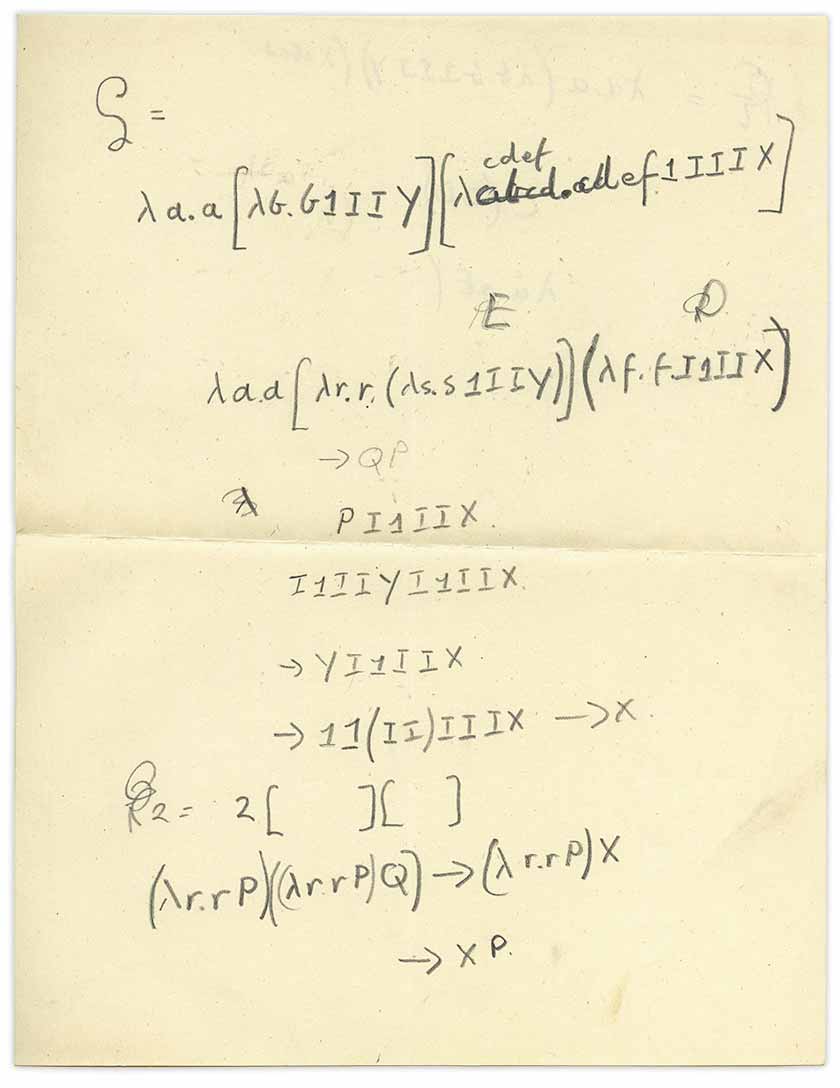 ζ =
cdef
λa.a[λb.b1IIY][λabcd.cdef1IIIX]
E D
λa.a[λr.r.(λs.s1IIY)](λf.f.I1IIX)
→QP
λ
PI1IIX.
I1IIYI1IIX.
→YI1IIX
→11(II)IIIX →X.
2= 2[ ][ ]
(λr.rP)((λr.rP)Q)→(λr.rP)X
→XP.